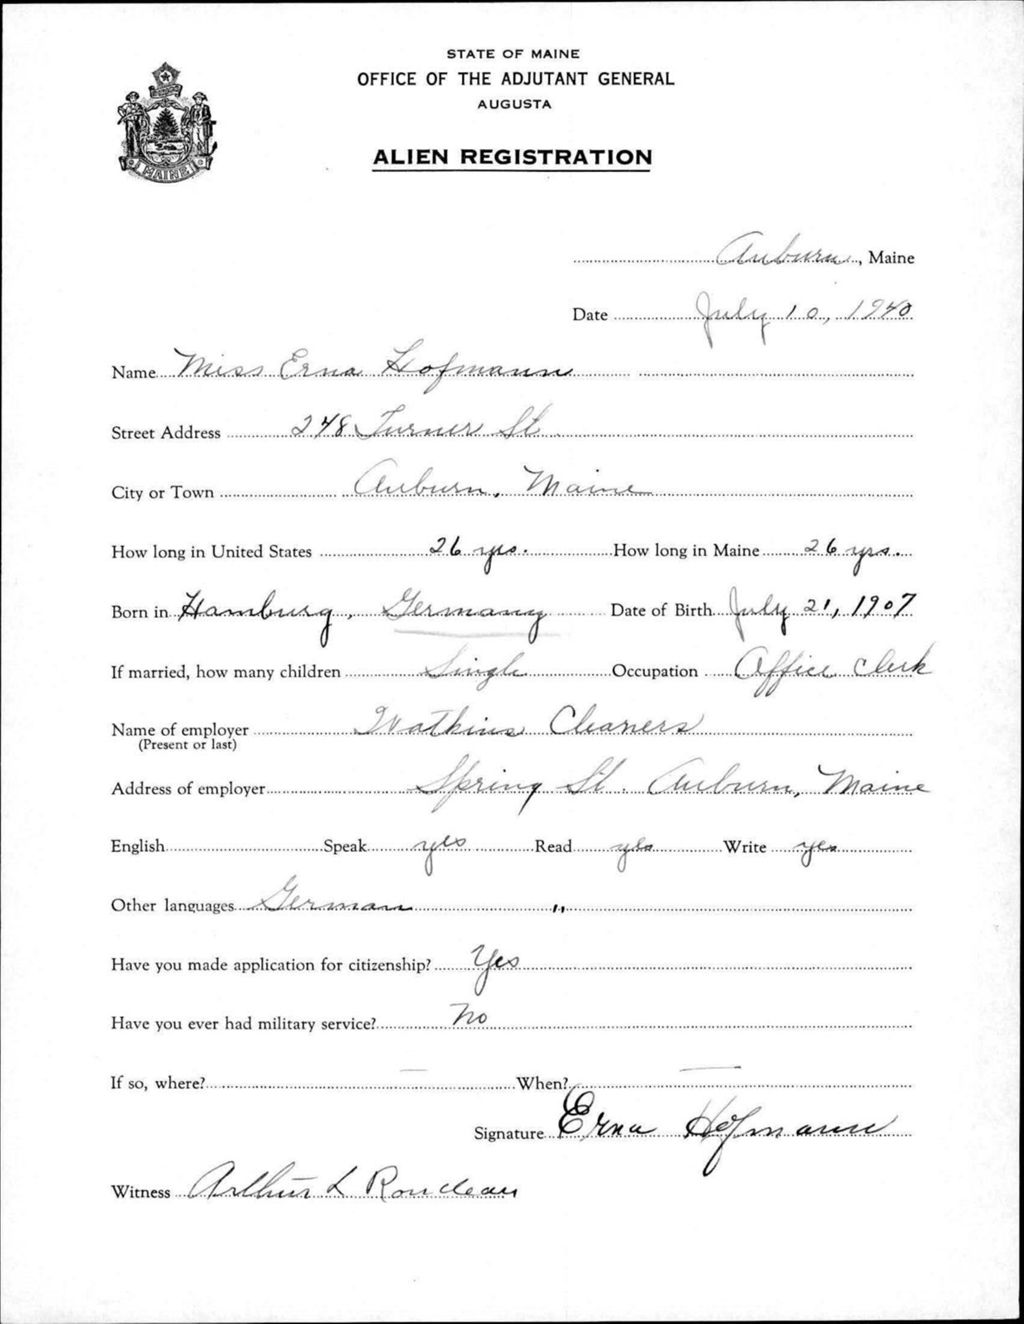 STATE OF MAINE
OFFICE OF THE ADJUTANT GENERAL
AUGUSTA
ALIEN REGISTRATION
MAINE
Auburn, Maine
Date July 10, 1940
Name Miss Erna Hofmann
Street Address 248 Turner St.
City or Town Auburn, Maine
How long in United States 26 yrs. How long in Maine 26 yrs.
Born in Hamburg, Germany Date of Birth July 21, 1907
If married, how many children Single Occupation Office Clerk
Name of employer Watkins Cleaners
(Present or last)
Address of employer Spring St. Auburn, Maine
English Speak yes Read yes Write yes
Other languages German "
Have you made application for citizenship? Yes
Have you ever had military service? No
If so, where? — When? —
Signature Erna Hofmann
Witness Arthur L Rondeau